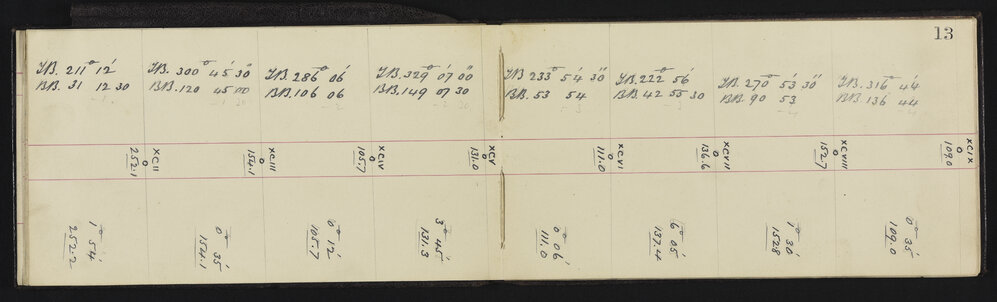 13
FB. 211° 12'
BB. 31 12 30
FB. 300° 45' 30"
BB. 120 45 00
FB. 286° 06'
BB. 106 06
FB. 329° 07' 00"
BB. 149 07 30
FB. 233° 54' 30"
BB. 53 54
FB. 222° 56'
BB. 42 55 30
FB. 270° 53' 30"
BB. 90 53
FB. 316° 44'
BB. 136 44
XCII
0
252.1
XCIII
0
154.1
XCIV
0
105.7
XCV
0
131.0
XCVI
0
111.0
XCVII
0
136.6
XCVIII
0
152.7
XCIX
0
109.0
1° 54'
252.2
0° 35'
154.1
0° 12'
105.7
3° 45'
131.3
0° 06'
111.0
6° 05'
137.4
1° 30'
152.8
0° 35'
109.0